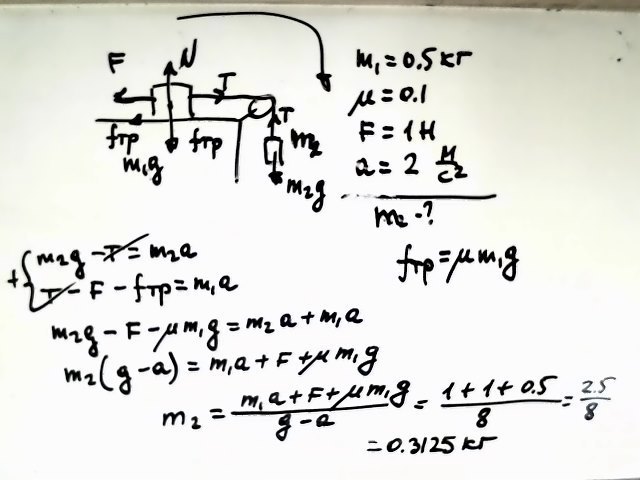 F N T
T
fтр fтр m₂
m₁g m₂g
m₁ = 0.5 кг
μ = 0.1
F = 1 Н
a = 2 м/с²
m₂ - ?
fтр = μm₁g
+ { m₂g - T = m₂a
T - F - fтр = m₁a
m₂g - F - μm₁g = m₂a + m₁a
m₂(g - a) = m₁a + F + μm₁g
m₂ = (m₁a + F + μm₁g)/(g - a) = (1 + 1 + 0.5)/8 = 2.5/8
= 0.3125 кг